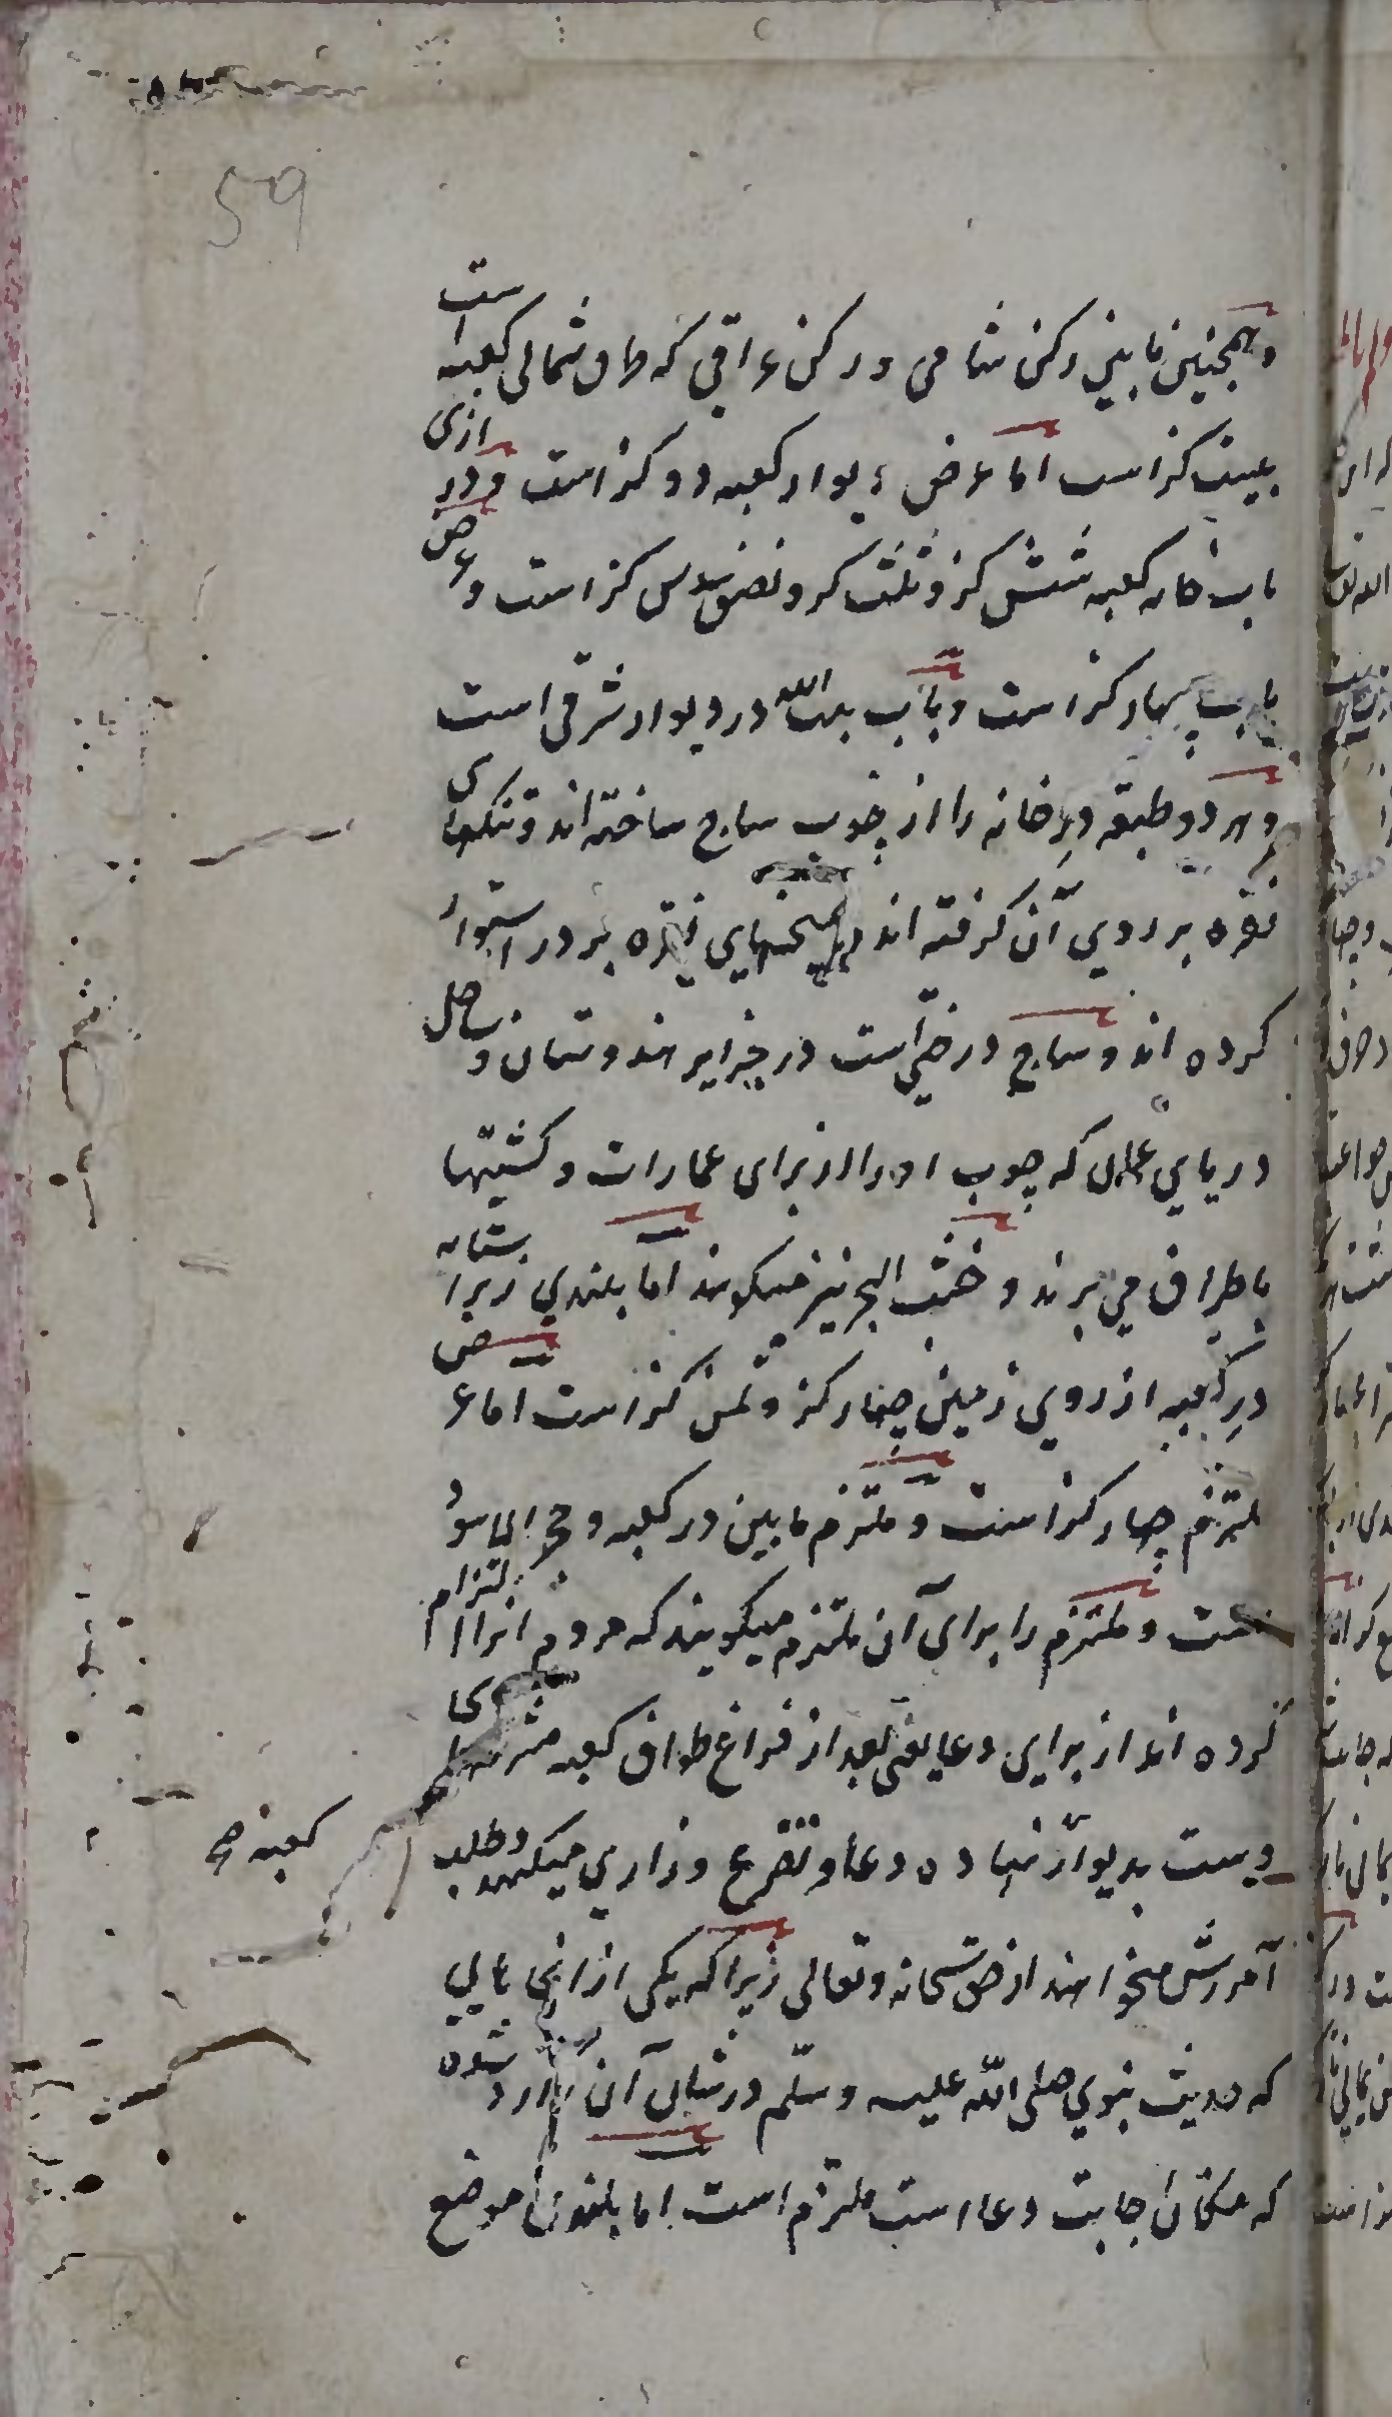 59
وهمچنین مابین رکن شامی و رکن عراقی که طرف شمالی کعبه است
بیست کز است اما عرض دیوار کعبه دو کز است و درازی
باب خانه کعبه شش کز و ثلث کز و نصف سدس کز است و عرض
باب چهار کز است و باب بیت الله در دیوار شرقی است
و هر دو طبقه درِ خانه را از چوب ساج ساخته اند و تنکهای
نقره بر روی آن کرفته اند میخهای نقره بر در استوار
کرده اند و ساج درختی است در جزایر هندوستان و ساحل
دریایی عمان که چوب او را از برای عمارات و کشتیها
باطراف می برند و خشب البحر نیز میکویند اما بلندی زیر آستانه
درِ کعبه از روی زمین چهار کز و ثمن کز است اما عرض
ملتزم چهار کز است و ملتزم مابین در کعبه و حجر الاسود
است و ملتزم را برای آن ملتزم میکویند که مردم انرا التزام
کرده اند از برای دعا یعنی بعد از فراغ طواف کعبه
دست بدیوار نهاده دعا و تضرع و زاری میکنند و طلب
کعبه صح
آمرزش میخواهند از حق سبحانه و تعالی زیرا که یکی از انجایهایی
که حدیث نبوی صلی الله علیه وسلّم در شان آن وارد شده
که مکان اجابت دعا است ملتزم است اما موضع